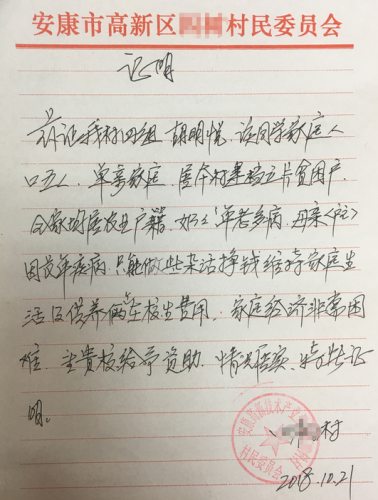 安康市高新区村民委员会
证明
兹证我村四组 胡明悦，该同学家庭人
口五人，单亲家庭，属本村建档立卡贫困户，
全家均属农业户籍，年老多病，母亲
因常年疾病，只能做些杂活挣钱维持家庭生
活及供养俩在校生费用，家庭经济非常困
难，望贵校给予资助，情况属实，特此证
明。
村
2018.10.21
村民委员会